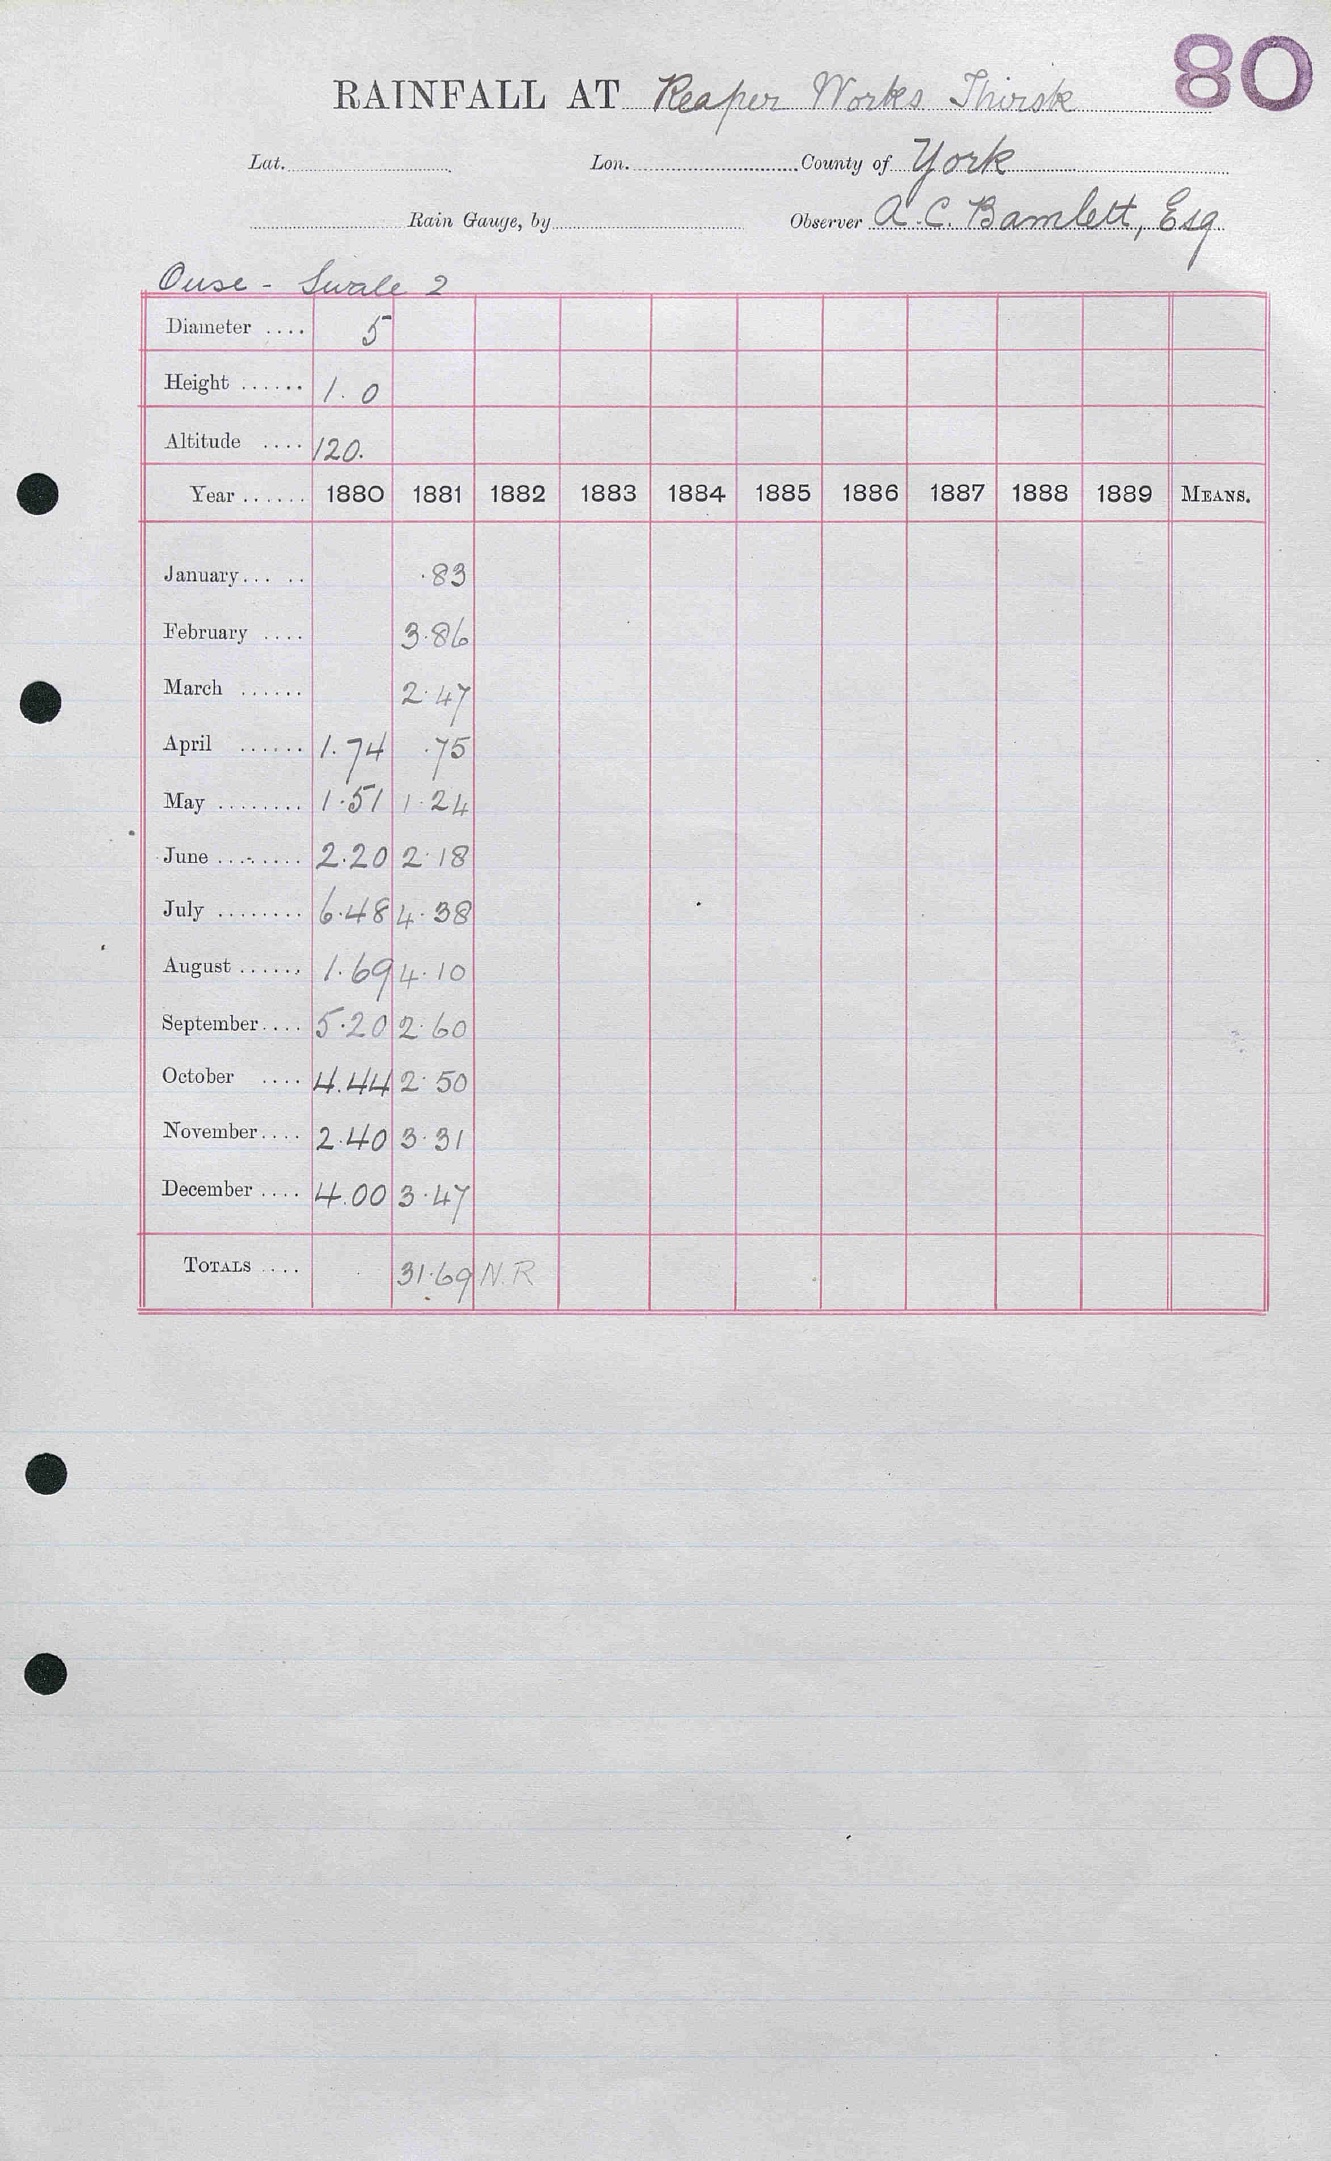 80
RAINFALL AT Reaper Works Thirsk
Lat. Lon. County of York
Rain Gauge, by Observer A. C. Bamlett, Esq
Ouse - Swale 2
Diameter .... 5
Height ...... 1. 0
Altitude .... 120.
Year ...... 1880 1881 1882 1883 1884 1885 1886 1887 1888 1889 MEANS.
January... .. .83
February .... 3.86
March ...... 2.47
April ...... 1.74 .75
May ........ 1.51 1.24
June ........ 2.20 2.18
July ........ 6.48 4.38
August ...... 1.69 4.10
September.... 5.20 2.60
October .... 4.44 2.50
November.... 2.40 3.31
December .... 4.00 3.47
TOTALS .... 31.69 N.R